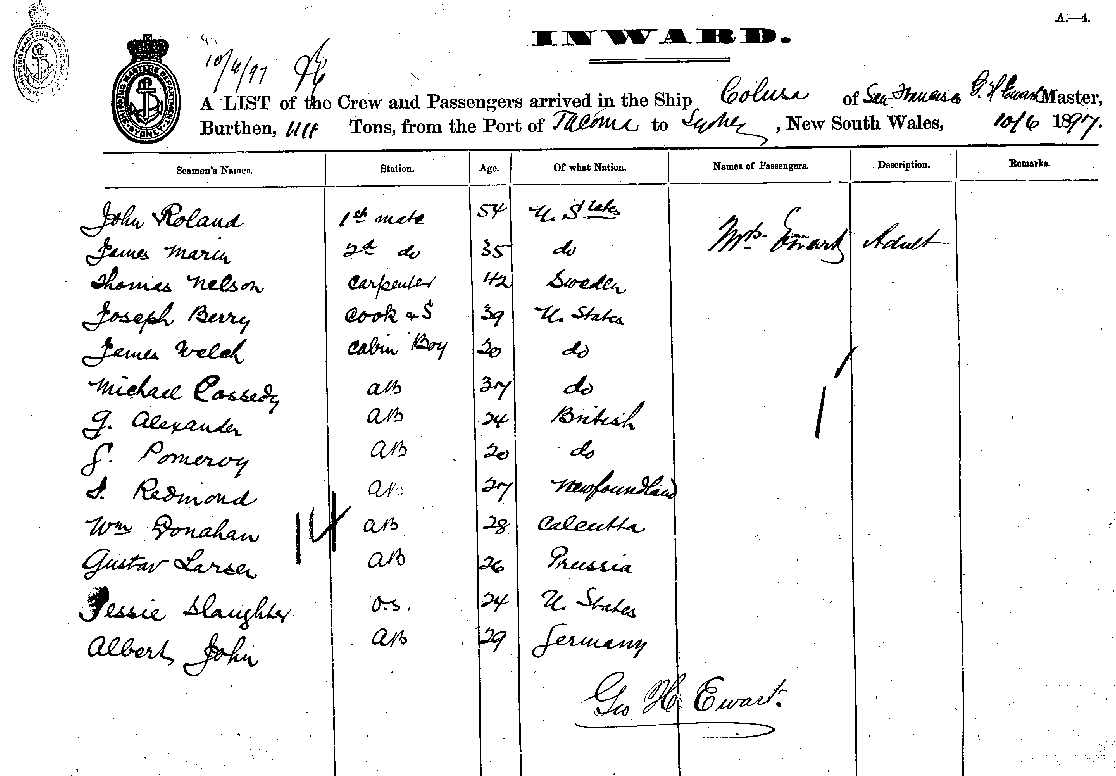 A.—4.
INWARD.
10/6/97
A LIST of the Crew and Passengers arrived in the Ship Colusa of San Francisco G. H Ewart Master,
Burthen, Tons, from the Port of Tacoma to Sydney, New South Wales, 10/6 1897.
Seamen's Names. Station. Age. Of what Nation. Names of Passengers. Description. Remarks.
John Roland 1st mate 54 U. States Mrs Ewart Adult
James Marin 2d do 35 do
Thomas Nelson Carpenter 42 Sweden
Joseph Berry Cook & S 39 U. States
James Welch Cabin Boy 20 do
Michael Cassedy AB 37 do
G. Alexander AB 24 British
Pomeroy AB 20 do
Redmond AB 27 Newfoundland
Wm Donahan AB 28 Calcutta
Gustav Larsen AB 26 Prussia
Jessie Slaughter O.S. 24 U. States
Albert John AB 29 Germany
14
1
Geo H. Ewart.